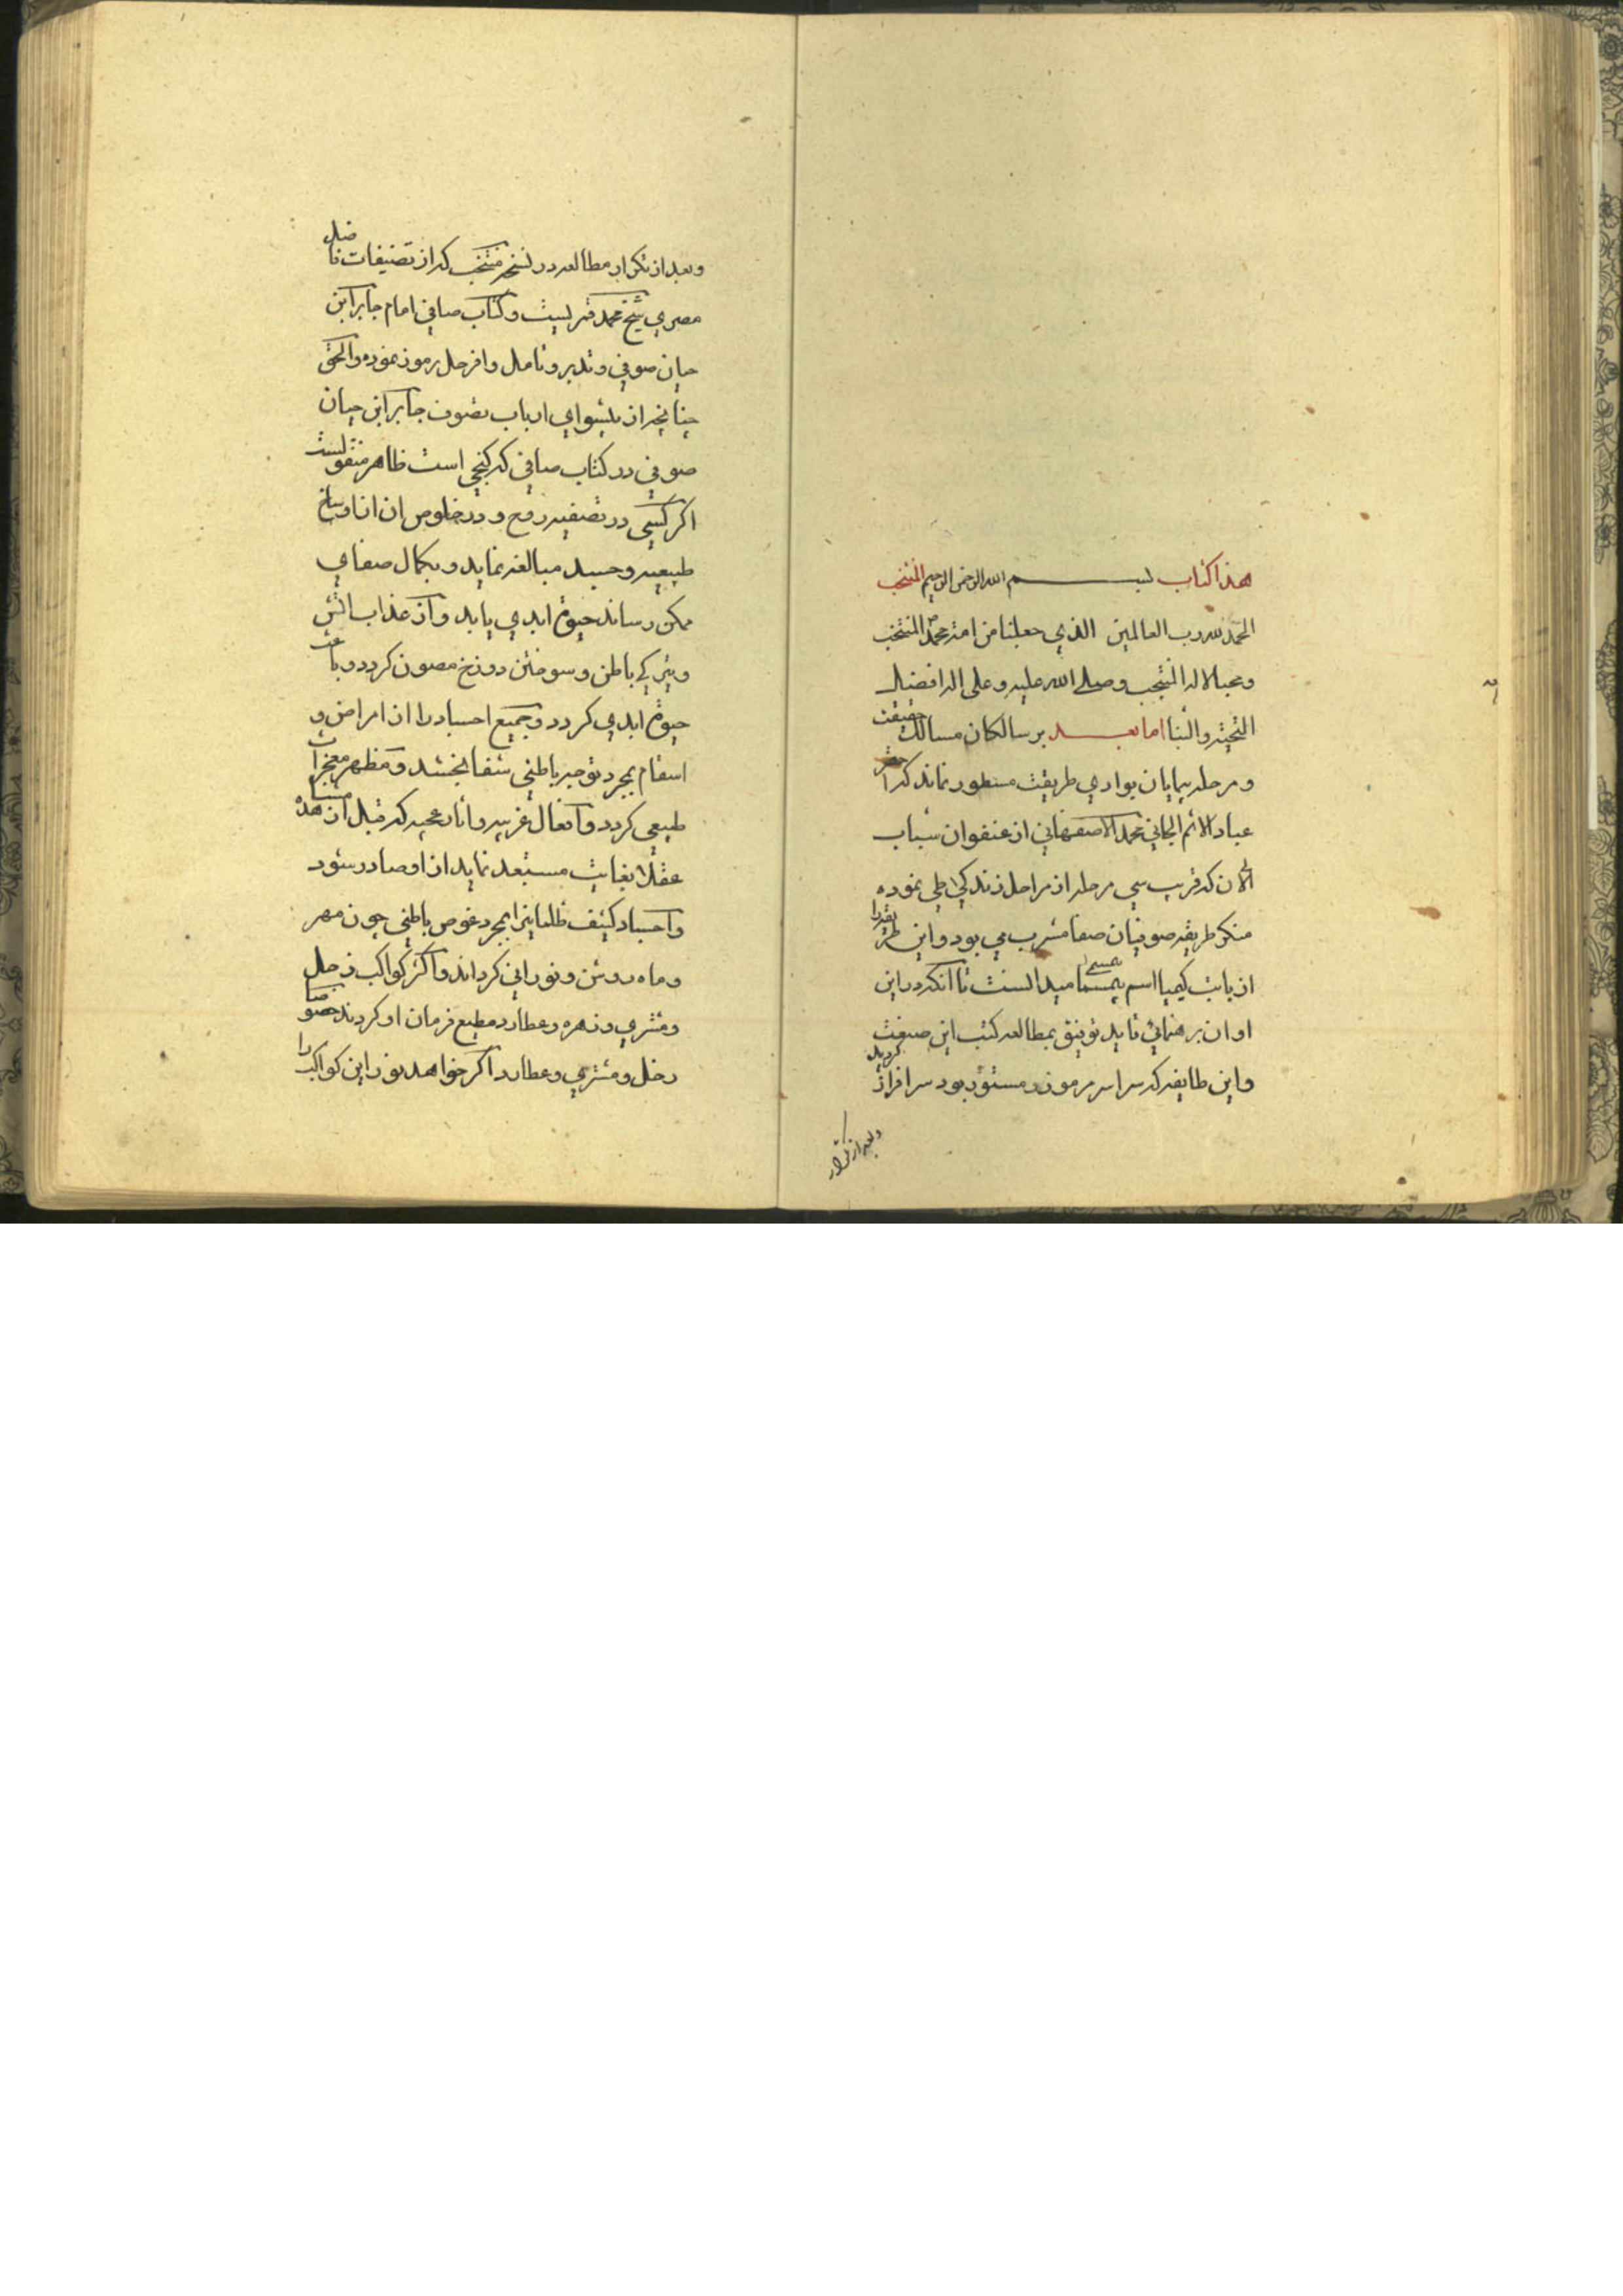 هذا كتاب بسم الله الرحمن الرحيم المنتخب
الحمد لله رب العالمين الذي جعلنا من امة محمد المنتخب
ومحبا لاله المنتجب وصلى الله عليه وعلى اله افضال
التحية والثنا اما بعد بر سالكان مسالك حقيقت
و مرحله پيمايان بوادي طريقت مسطور نماند كه احقر
عباد الاثم الجاني محمد الاصفهاني از عنفوان شباب
الى الان كه قريب سي مرحله از مراحل زندكي طي نموده
منكر طريقه صوفيان صفا مشرب مي بود و اين طريقه را
از بابت كيميا اسم بي مسمى ميدانست تا انكه در اين
اوان برهنمائي تاييد توفيق بمطالعه كتب اين صنعت
و اين طايفه كه سراسر مرموز و مستور بود سرافراز كرديد
و بعد از تكرار
و بعد از تكرار مطالعه در نسخه منتخب كه از تصنيفات فاضل
مصري شيخ محمد قمريست و كتاب صافي امام جابر ابن
حيان صوفي و تدبر و تامل وافر حل رموز نموده والحق
چنانچه از پيشواي ارباب تصوف جابر ابن حيان
صوفي در كتاب صافي كه كنجي است ظاهر منقولست
اكر كسي در تصفيه روح و در خلوص ان از اوساخ
طبيعيه و جسد مبالغه نمايد و بكمال صفاي
ممكن رساند حيوة ابدي يابد و از عذاب اتش
و تيركي باطن و سوختن دوزخ مصون كردد و باعث
حيوة ابدي كردد و جميع اجساد را از امراض و
اسقام بمجرد توجه باطني شفا بخشد و مظهر معجزات
طبيعي كردد و افعال غريبه و اثار عجيبه كه قبل از مشاهده
عقلا بغايت مستبعد نمايد از او صادر شود
و اجساد كثيف ظلمانيرا بمجرد غوص باطني چون مهر
و ماه روشن و نوراني كرداند و اكثر كواكب زحل
و مشتري و زهره و عطارد مطيع فرمان او كردند خصوصا
زحل و مشتري و عطارد اكر خواهد نور اين كواكب را